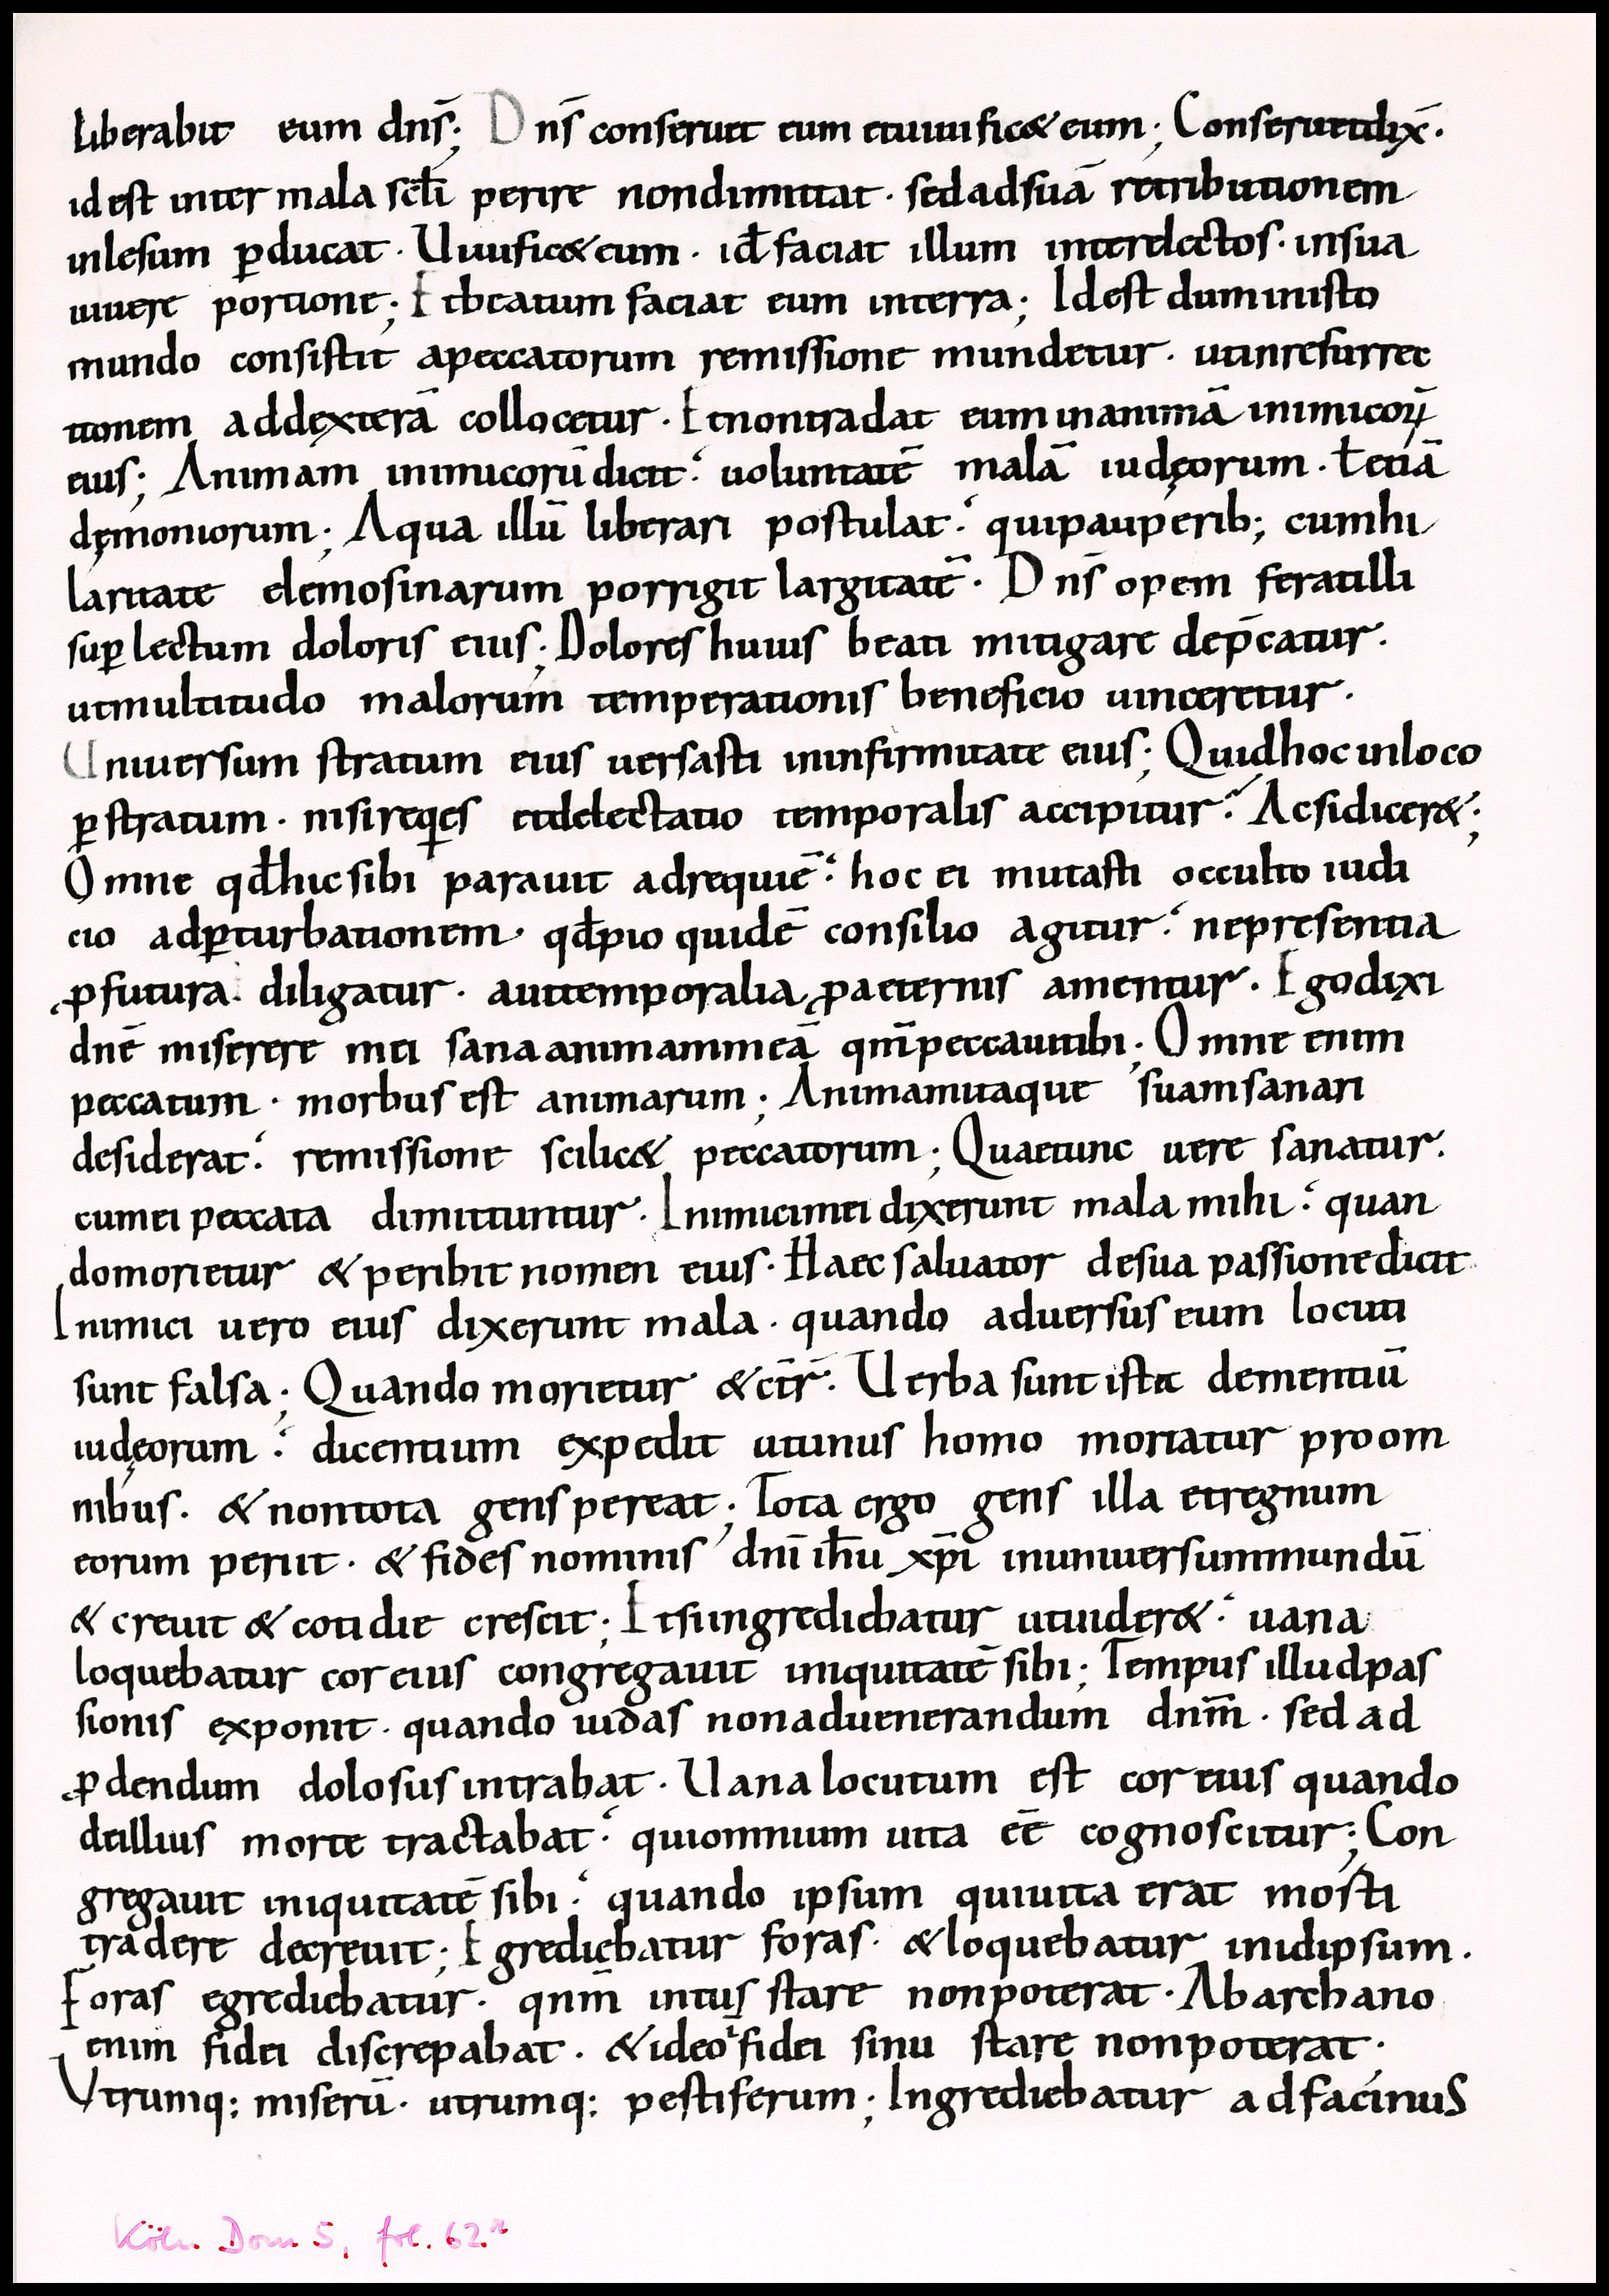 liberabit eum dn̄s; Dn̄s conseruet eum etuiuific& eum; Conseruetdix̄·
id est inter mala scl̄i perire nondimittat · sedadsuā retributionem
inlesum ꝑducat · Uiuific&eum · id̄ faciat illum interelectos · insua
uiuere portione; Etbeatum faciat eum interra; Idest duministo
mundo consistit apeccatorum remissione mundetur · utinresurrec
tionem addęxterā collocetur · Etnontradat eum inanimā inimicoꝝ
eius; Animam inimicorū dicit: uoluntatē malā iudęorum · ł etiā
dęmoniorum; Aqua illū liberari postulat: quipauperib; cumhi
laritate elemosinarum porrigit largitatē · Dn̄s opem feratilli
suꝑ lectum doloris eius; Dolores huius beati mitigare dep̄catur ·
utmultitudo malorum temperationis beneficio uinceretur ·
Uniuersum stratum eius uersasti ininfirmitate eius; Quidhoc inloco
ꝑstratum · nisireq̇es etdelectatio temporalis accipitur: Acsidicer&;
Omne qd̄hic sibi parauit adrequiē: hoc ei mutasti occulto iudi
cio adꝑturbationem · qd̄pio quidē consilio agitur: nepresentia
ꝓfutura diligatur · auttemporalia ꝓaeternis amentur · Egodixi
dn̄e miserere mei sanaanimammeā qm̄peccauitibi; Omne enim
peccatum · morbus est animarum; Animamitaque suamsanari
desiderat: remissione scilic& peccatorum; Quaetunc uere sanatur ·
cumei peccata dimittuntur · Inimicimei dixerunt mala mihi: quan
domorietur & peribit nomen eius · Haec saluator desua passionedicit
Inimici uero eius dixerunt mala · quando aduersus eum locuti
sunt falsa; Quando morietur & cēt̄r̄ · Uerba sunt istec dementiū
iudęorum: dicentium expedit utunus homo moriatur proom
nibus · & nontota gens pereat; Tota ergo gens illa etregnum
eorum periit · & fides nominis dn̄i ih̄u xp̄i inuniuersummundū
& creuit & cotidie crescit; Etsiingrediebatur utuider&: uana
loquebatur cor eius congregauit iniquitatē sibi; Tempus illudpas
sionis exponit · quando iudas nonaduenerandum dnm̄ · sed ad
ꝓdendum dolosus intrabat · Uana locutum est cor eius quando
deillius morte tractabat: quiomnium uita ēē cognoscitur; Con
gregauit iniquitatē sibi: quando ipsum quiuita erat morti
tradere decreuit; Egrediebatur foras · & loquebatur inidipsum ·
Foras egrediebatur · qnm̄ intus stare nonpoterat · Abarchano
enim fidei discrepabat · & ideo fidei sinu stare nonpoterat ·
Utrumq; miserū · utrumq; pestiferum; Ingrediebatur adfacinus
Köln. Dom 5, fol. 62.r